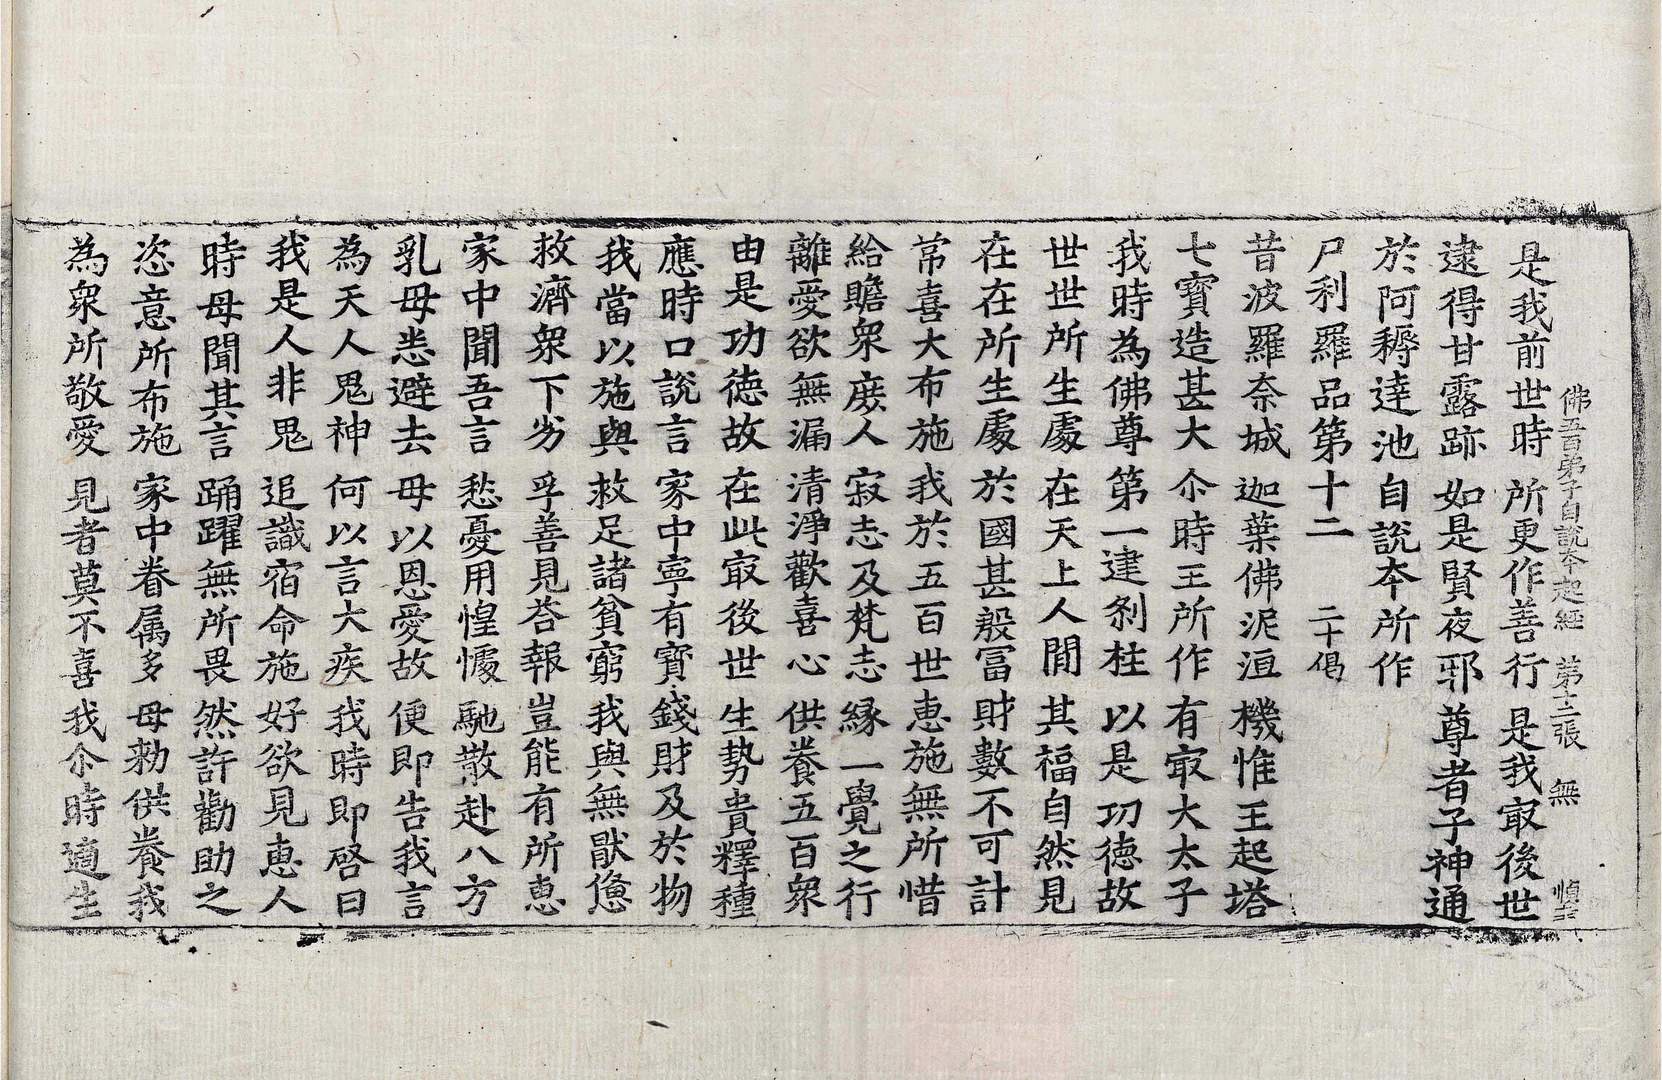 佛五百弟子自說本起經　第十二張　無
是我前世時　所更作善行　是我㝡後世
逮得甘露跡　如是賢夜耶　尊者子神通
於阿耨達池　自說本所作
尸利羅品第十二　二十偈
昔波羅奈城　迦葉佛泥洹　機惟王起塔
七寶造甚大　尒時王所作　有㝡大太子
我時為佛尊　第一建刹柱　以是功德故
世世所生處　在天上人間　其福自然見
在在所生處　於國甚殷冨　財數不可計
常喜大布施　我於五百世　恵施無所惜
給贍衆庻人　寂志及梵志　緣一覺之行
離愛欲無漏　清淨歡喜心　供養五百衆
由是功德故　在此㝡後世　生勢貴釋種
應時口說言　家中寧有寶　錢財及於物
我當以施與　救足諸貧窮　我與無猒惓
救濟衆下劣　孚善見荅報　豈能有所恵
家中聞吾言　愁憂用惶懅　馳散赴八方
乳母悉避去　母以恩愛故　便即告我言
為天人鬼神　何以言大疾　我時即啓曰
我是人非鬼　追識宿命施　好欲見恵人
時母聞其言　踊躍無所畏　然許勸助之
恣意所布施　家中眷属多　母勑供養我
為衆所敬愛　見者莫不喜　我尒時適生